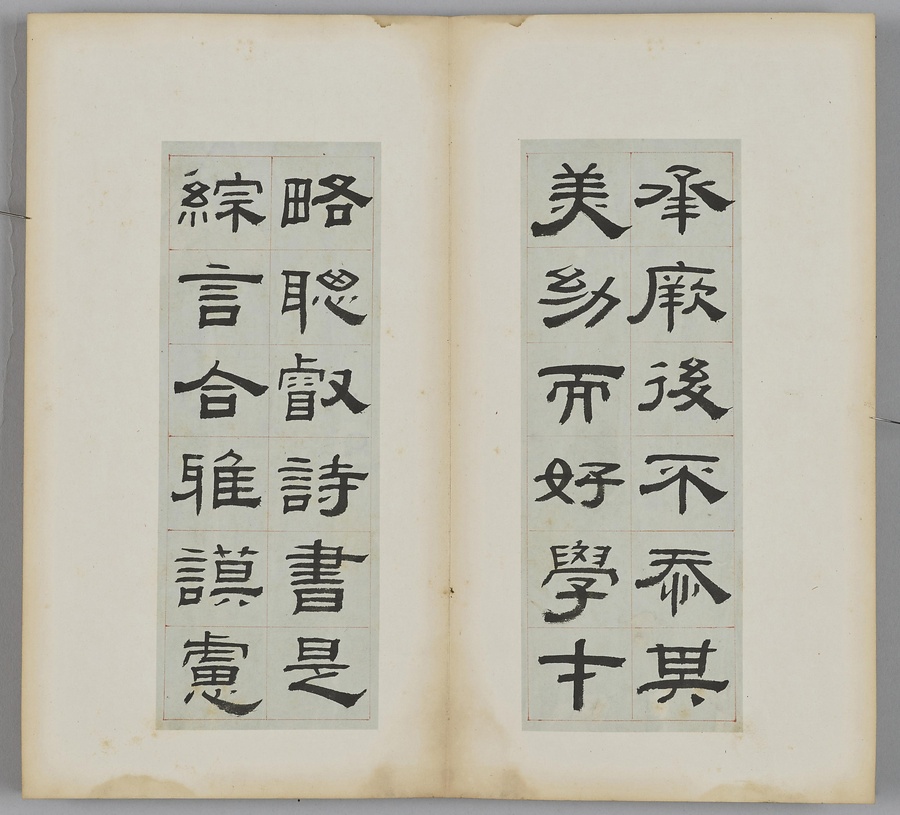 承厥後不忝其
美幼而好學才
略聰叡詩書是
綜言合雅謨慮